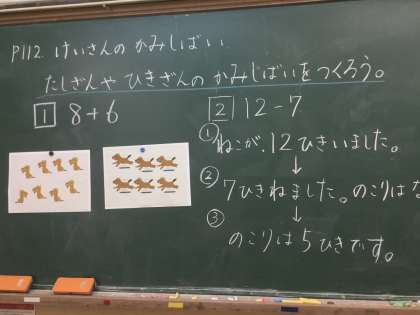 P112. けいさんの かみしばい.
たしざんや ひきざんの かみしばいをつくろう。
1 8+6
2 12-7
① ねこが、12ひきいました。
↓
② 7ひきねました。のこりは
↓
③ のこりは5ひきです。